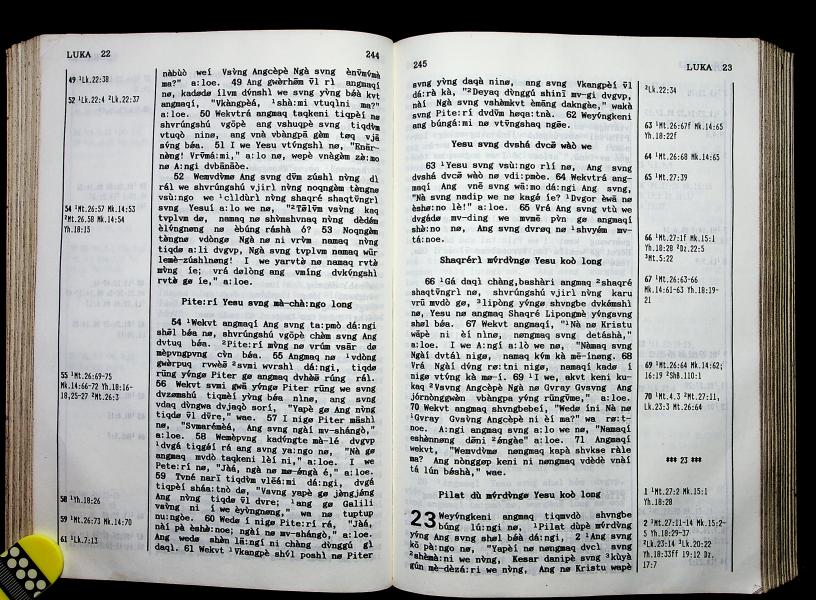 LUKA 22
244
49 ¹Lk.22:38
52 ¹Lk.22:4 ²Lk.22:37
54 ¹Mt.26:57 Mk.14:53
²Mt.26.58 Mk.14:54
Yh.18:15
55 ¹Mt.26:69-75
Mk.14:66-72 Yh.18:16-
18,25-27 ²Mt.26:3
58 ¹Yh.18:26
59 ¹Mt.26:73 Mk.14:70
61 ¹Lk.7:13
nàbùò weí Vsv̀ng Angcèpè Ngà svng
ma?" a:loe. 49 Ang v̄l rl angmaqí
nø, kadødø ílvm dv́nshl we svng yv̀ng béá kvt
angmaqí, "Vkàngpèá, ¹shà:mì vtuqlnì ma?"
a:loe. 50 Wekvtrá angmaq taqkeni tiqpèí nø
shvrúngshú vgōpè ang vshuqpè svng tiqdv̀m
vtuqò ninø, ang vnà vbàngpā gèm tøq vjā
sv́ng béa. 51 I we Yesu vtv́ngshl nø, "Enár-
nèng! Vrv̄má:mì," a:lo nø, wepè vnègm zè:mo
nø A:ngì dvbānāòe.
52 Wemvdv̀mø Ang svng dv̄m zúshl nv̀ng dl
rál we shvrúngshú vjìrl nv̀ng noqngèm tèngnø
vsù:ngo we ¹clldùrl nv̀ng shaqré shaqtv̄ngrl
svng Yesuí a:lo we nø, "²Tēlv̄m vsv̀ng kaq
tvplvm dø, namaq nø shv̀mshvnaq nv̀ng dèdám
èlv́ngnøng nø èbúng ráshà é? 53 Noqngàm
tèngnø vdòngø Ngà nø ni vrv̀m namaq nv̀ng
tiqdø a:lì dvgvp, Ngà svng tvplvm namaq wūr
lemè-zúshlnøng! I we yarvtè nø namaq rvtè
mv̀ng ìe; vrá dølòng ang vmíng dvkv́ngshl
rvtè gø íe," a:loe.
Pite:rí Yesu svng mà-chà:ngo long
54 ¹Wekvt angmaqí Ang svng ta:pmò dá:ngì
shēl béa nø, shvrúngshú vgōpè chèm svng Ang
dvtuq béa. ²Pite:rí mv̀ng nø vrúm vsār dø
mèpvngpvng cv̀n béa. 55 Angmaq nø ¹vdòng
gwèrpuq rvwèē ²svmì wvrshl dá:ngì, tiqdø
rūng yv́ngø Piter gø angmaq dvhēē rúng rál.
56 Wekvt svmì gwā yv́ngø Piter rūng we svng
dvzømshú tiqmèí yv̀ng béa nlnø, ang svng
vdaq dv̀ngwa dvjaqò sorí, "Yapè gø Ang nv̀ng
tiqdø v̄l dv̄re," wae. 57 I nígø Piter māshl
nø, "Svmaréméá, Ang svng ngáí mv-shángò,"
a:loe. 58 Wemèpvng kadv́ngte mà-lé dvgvp
¹dvgá tiqgéí rá ang svng ya:ngo nø, "Nà gø
angmaq mvdò taqkeni lèí nì," a:loe. I we
Pete:rí nø, "Jàá, ngà nø mø-éngà é," a:loe.
59 Tv̀né narì tiqdv̀m vlēē:mì dá:ngì, dvgá
tiqpèí sháa:tnò dø, "Vsvng yapè gø jèngjéng
Ang nv̀ng tiqdø v̄l dvre; ¹ang gø Galili
vsv̀ng ni í we èyv̀ngnøng," wa nø tuptup
nu:ngòe. 60 Wedø í nígø Pite:rí rá, "Jàá,
nàí pà èshø:noe; ngàí nø mv-shángò," a:loe.
Ang wedø shøn lā:ngì ni chàng dv̀nggú gl
daql. 61 Wekvt ¹Vkangpè shv́l poshl nø Piter
245
LUKA 23
svng yv̀ng daqà ninø, ang svng Vkangpèí v̄l
dá:rà kà, "²Deyaq dv̀nggú shinī mv-gì dvgvp,
nàí Ngà svng vshèmkvt èmāng dakngàe," wakà
svng Pite:rí dvdv̄m høqa:tnà. 62 Weyv́ngkeni
ang búngá:mì nø vtv̄ngshaq ngøe.
Yesu svng dvshá dvcø̄ wàò we
63 ¹Yesu svng vsù:ngo rlí nø, Ang svng
dvshá dvcø̄ wàò nø vdi:pmòe. 64 Wekvtrá ang-
maqí Ang vnē svng wā:mo dá:ngì Ang svng,
"Nà svng nadip we nø kagē íe? ¹Dvgor èwā nø
èshø:no lè!" a:loe. 65 Vrá Ang svng vtù we
dvgádø mv-ding we mvmē pv̀n gø angmaqí
shø:no nø, Ang svng dvrøq nø ¹shvyém mv-
tá:noe.
Shaqrérl mv́rdv̀ngø Yesu koò long
66 ¹Gá daql chàng,basharì angmaq ²shaqré
shaqtv̄ngrl nø, shvrúngshú vjìrl nv̀ng karu
vrū mvdò gø, ³lipòng yv́ngø shvngbe dvkv́mshl
nø, Yesu nø angmaq Shaqré Lipongmè yv́ngavng
shøl béa. 67 Wekvt angmaqí, "¹Nà nø Kristu
wāpè nì éí nlnø, nøngmaq svng detáshà,"
a:loe. I we A:ngì a:lò we nø, "Nàmaq svng
Ngàí dvtál nígø, namaq kv́m kà mē-ínøng. 68
Vrá Ngàí dv́ng rø:tnì nígø, namaqí kadø í
nígø vtv́ng kà mø-í. 69 ¹I we, akvt keni ku-
kaq ²Vsvng Angcèpè Ngà nø Gvray Gvsvng Ang
jórnònggwèn vbàngpa yv́ng rūngv̄me," a:loe.
70 Wekvt angmaq shvngbebeí, "Wedø íni Nà nø
¹Gvray Gvsv̀ng Angcèpè ni èí ma?" wa rø:t-
noe. A:ngì angmaq svng a:lo we nø, "Namaqí
eshènnøng dēnì ²éngàe" a:loe. 71 Angmaqí
wekvt, "Wemvdv̀mø nøngmaq kapà shvkse ràle
ma? Ang nònggøp keni ni nøngmaq vdèdè vnàì
tá lún báshà," wae.
Pilat dù mv́rdv̀ngø Yesu koò long
23 Weyv́ngkeni angmaq tiqmvdò shvngbe
búng lú:ngì nø, ¹Pilat dùpè mv́rdv̀ng
yv́ng Ang svng shøl béá dá:ngì, 2 ¹Ang svng
kō pà:ngo nø, "Yapèí nø nøngmaq dvcl svng
²shèmà:nì we nv̀ng, Kesar danìpè svng ³kùyà
gún mè-dèzá:rì we nv̀ng, Ang nø Kristu wapè
²Lk.22:34
63 ¹Mt.26:67f Mk.14:65
Yh.18:22f
64 ¹Mt.26:68 Mk.14:65
65 ¹Mt.27:39
66 ¹Mt.27:1f Mk.15:1
Yh.18:28 ²Dz.22:5
³Mt.5:22
67 ¹Mt.26:63-66
Mk.14:61-63 Yh.18:19-
21
69 ¹Mt.26:64 Mk.14:62;
16:19 ²ShB.110:1
70 ¹Mt.4.3 ²Mt.27:11,
Lk.23:3 Mt.26:64
*** 23 ***
1 ¹Mt.27:2 Mk.15:1
Yh.18:28
2 ¹Mt.27:11-14 Mk.15:2-
5 Yh.18:29-37
²Lk.23:14 ³Lk.20:22
Yh.18:33ff 19:12 Dz.
17:7